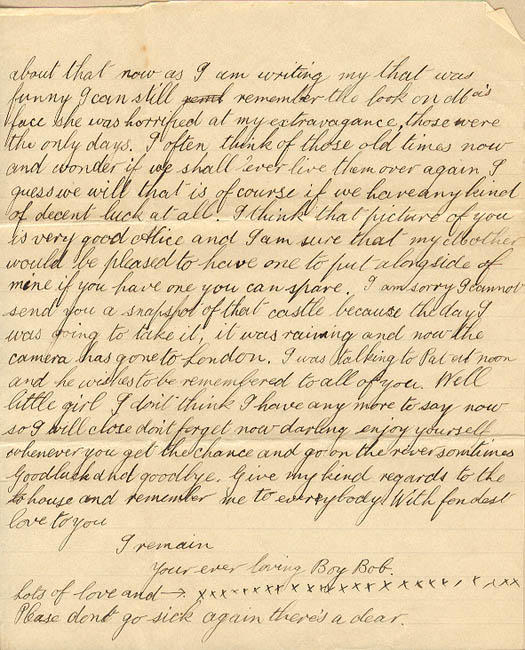 about that now as I am writing my that was
funny I can still remember the look on Ma's
face she was horrified at my extravagance, those were
the only days. I often think of those old times now
and wonder if we shall ever live them over again I
guess we will that is of course if we have any kind
of decent luck at all. I think that picture of you
is very good Alice and I am sure that my Mother
would be pleased to have one to put alongside of
mine if you have one you can spare. I am sorry I cannot
send you a snapshot of that castle because the day I
was going to take it, it was raining and now the
camera has gone to London. I was talking to Pat at noon
and he wishes to be remembered to all of you. Well
little girl I don't think I have any more to say now
so I will close don't forget now darling enjoy yourself
whenever you get the chance and go on the river somtimes
Goodluck and goodbye. Give my kind regards to the
house and remember me to everybody. With fondest
love to you
I remain
Your ever loving Boy Bob.
Lots of love and → x x x x x x x x x x x x x x x x x x x x x x
Please don't go sick again there's a dear.